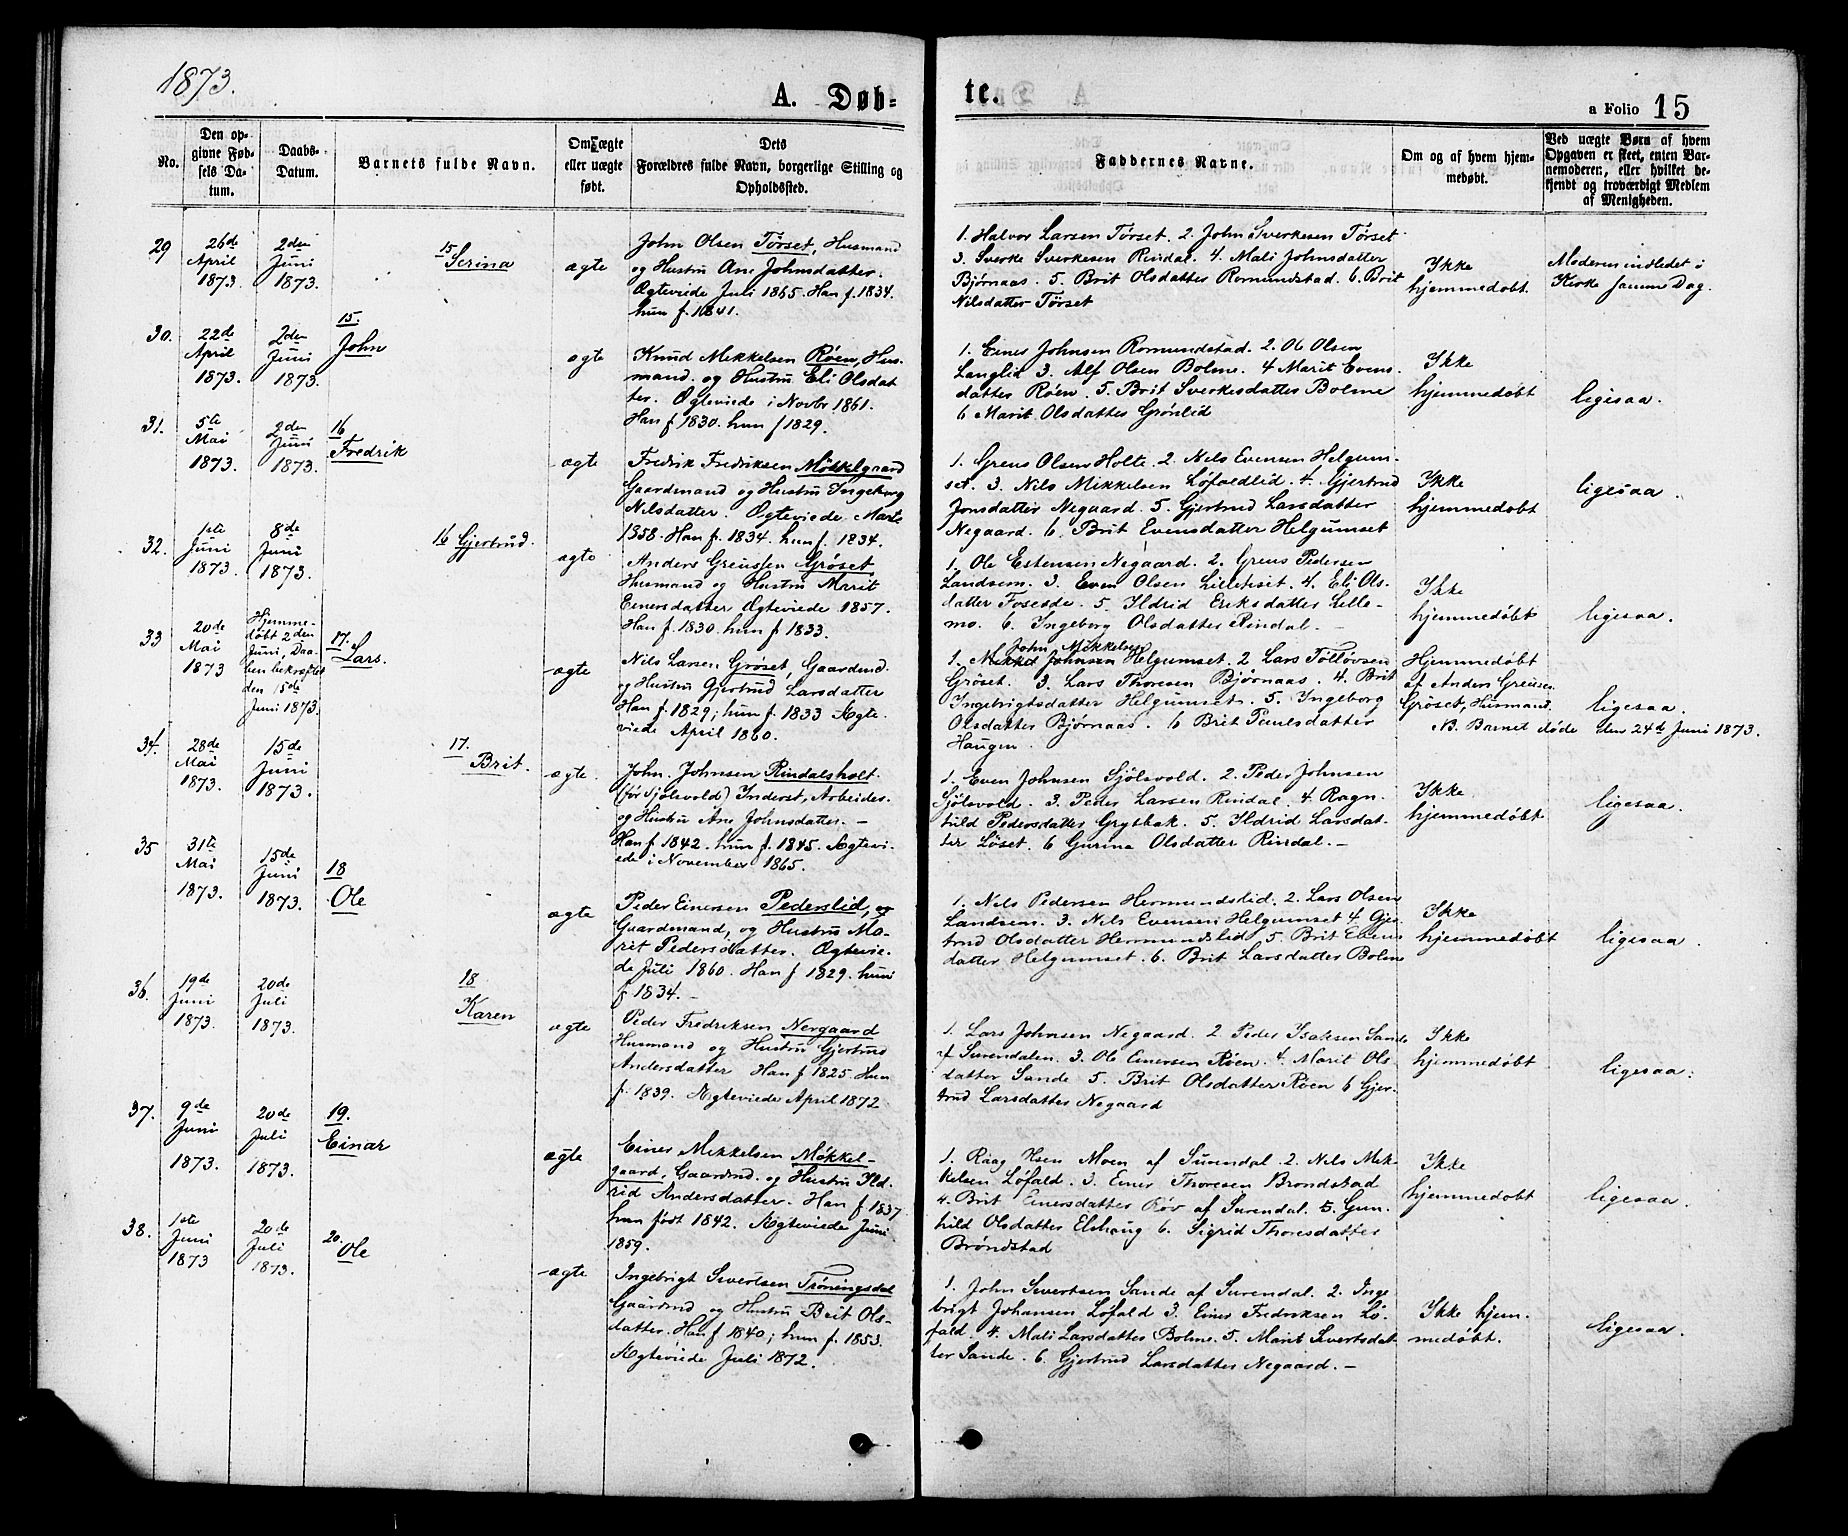 1873.
A. Døb-
te.
a Folio 15
No.
Den op-
givne Fød-
sels Da-
tum.
Daabs-
Datum.
Barnets fulde Navn.
Om ægte
eller uægte
født.
Dets
Forældres fulde Navn, borgerlige Stilling og
Opholdssted.
Faddernes Navne.
Om og af hvem hjem-
medøbt.
Ved uægte Børn af hvem
Opgaven er skeet, enten Bar-
nemoderen, eller hvilket be-
kjendt og troværdigt Medlem
af Menigheden.
29
26de
April
1873.
2den
Juni
1873.
15
Serina
ægte
John Olsen Tørset, Husmand
og Hustru Ane Johnsdatter.
Ægteviede Juli 1865. Han f. 1834.
hun f. 1841.
1. Halvor Larsen Tørset. 2. John Sverkesen Tørset
3. Sverke Sverkesen Rindal. 4. Mali Johnsdatter
Bjørnaas. 5. Brit Olsdatter Romundstad. 6. Brit
Nilsdatter Tørset
Ikke
hjemmedøbt.
Moderen indledet i
Kirke samme Dag.
30.
22de
April
1873.
2den
Juni
1873.
15.
John
ægte
Knud Mikkelsen Røen, Hus-
mand, og Hustru Eli Olsdat
ter. Ægteviede i Novbr 1861.
Han f 1830. hun f 1829.
1. Einer Johnsen Romundstad. 2. Ole Olsen
Langlid 3. Alf Olsen Bolme. 4 Marit Evens-
datter Røen. 5. Brit Sverkesdatter Bolme
6 Marit Olsdatter Grønlid
Ikke
hjemmedøbt
ligesaa.
31.
5te
Mai
1873.
2den
Juni
1873.
16
Fredrik
ægte
Fredrik Fredriksen Møkkelgaard
Gaardmand og Hustru Ingeborg
Nilsdatter. Ægteviede Marts
1858. Han f. 1834. hun f. 1834.
1. Greus Olsen Holte. 2. Nils Evensen Helgum-
set. 3. Nils Mikkelsen Løfaldlid. 4. Gjertrud
Jonsdatter Negaard. 5. Gjertrud Larsdatter
Negaard. 6. Brit Evensdatter Helgumset
Ikke
hjemmedøbt
ligesaa.
32.
1ste
Juni
1873.
8de
Juni
1873.
16 Gjertrud.
ægte
Anders Greussen Grøset
Husmand og Hustru Marit
Einersdatter Ægteviede 1857.
Han f. 1830. hun f 1833.
1. Ole Estensen Negaard. 2. Greus Pedersen
Landsem. 3. Even Olsen Lilleteset. 4. Eli Ols-
datter Foseide. 5. Ildrid Eriksdatter Lille-
mo. 6. Ingeborg Olsdatter Rindal. —
Ikke
hjemmedøbt
ligesaa.
33
20de
Mai
1873
Hjemme-
døbt 2den
Juni, Daa-
ben bekræftet
den 15de
Juni 1873.
17.
Lars.
ægte
Nils Larsen Grøset, Gaardmd.
og Hustru Gjertrud Larsdatter
Han f. 1829; hun f. 1833 Ægte-
viede April 1860.
John Mikkelsen
1. Mikkel Johnsen Helgumset. 2 Lars Tolløvsen
Grøset. 3. Lars Thoresen Bjørnaas. 4. Brit
Ingebrigtsdatter Helgumset. 5. Ingeborg
Olsdatter Bjørnaas. 6 Brit Paulsdatter
Haugen.
Hjemmedøbt
af Anders Greusen
Grøset, Husmand.
ligesaa.
NB. Barnet døde den 24de Juni 1873.
34.
28de
Mai
1873.
15de
Juni
1873.
17.
Brit.
ægte.
John Johnsen Rindalsholt.
(før Sjølsvold) Inderst, Arbeider.
og Hustru Ane Johnsdatter. —
Han f 1842. hun f. 1845. Ægtevi-
ede i November 1865.
1. Even Johnsen Sjølsvold. 2. Peder Johnsen
Sjølsvold. 3. Peder Larsen Rindal. 4. Ragn-
hild Pedersdatter Grytbak. 5. Ildrid Larsdat-
ter Løset. 6 Gurina Olsdatter Rindal. —
Ikke
hjemmedøbt
ligesaa.
35
31te
Mai
1873.
15de
Juni
1873.
18
Ole
ægte
Peder Einersen Pederslid, og
Gaardmand, og Hustru Ma-
rit Pedersdatter. Ægtevie-
de Juli 1860. Han f 1829. hun
f. 1834. —
1. Nils Pedersen Hermundslid. 2. Lars Olsen
Landsem. 3. Nils Evensen Helgumset 4. Gjer-
trud Olsdatter Hermundslid 5. Brit Evens
datter Helgumset. 6. Brit Larsdatter Bolme
Ikke
hjemmedøbt
ligesaa.
36.
19de
Juni
1873.
20de
Juli
1873.
18.
Karen
ægte
Peder Fredriksen Nergaard
Husmand og Hustru Gjertrud
Andersdatter Han f 1825. Hun
f. 1839. Ægteviede April 1872
1. Lars Johnsen Negaard. 2 Peder Isaksen Sande
af Surendalen. 3. Ole Einersen Røen. 4. Marit Ols-
datter Sande 5. Brit Olsdatter Røen 6 Gjer-
trud Larsdatter Negaard
Ikke
hjemmedøbt
ligesaa.
37.
9de
Juni
1873.
20de
Juli
1873.
19.
Einar
ægte
Einer Mikkelsen Møkkel-
gaard, Gaardmd. og Hustru Ild-
rid Andersdatter. Han f. 1837
hun født 1842. Ægteviede Juni
1859.
1. Raag Moen af Surendal. 2. Nils Mik-
kelsen Løfald. 3. Einer Thoresen Brøndstad
4. Brit Einersdatter Røv af Surendal. 5. Gun-
hild Olsdatter Elshaug 6. Sigrid Thoresdatter
Brøndstad
Ikke
hjemmedøbt
ligesaa.
38.
1ste
Juni
1873
20de
Juli
1873.
20.
Ole
ægte
Ingebrigt Sivertsen Trøningsdal
Gaardmd og Hustru Brit Ols-
datter. Han f 1840; hun f. 1853.
Ægteviede Juli 1872.
1. John Sivertsen Sande af Surendal. 2. Inge
brigt Johansen Løfald 3. Einer Fredriksen Lø-
fald. 4. Mali Larsdatter Bolme. 5. Marit Sivertsdat-
ter Sande. 6. Gjertrud Larsdatter Negaard. —
Ikke hjem-
medøbt.
ligesaa.